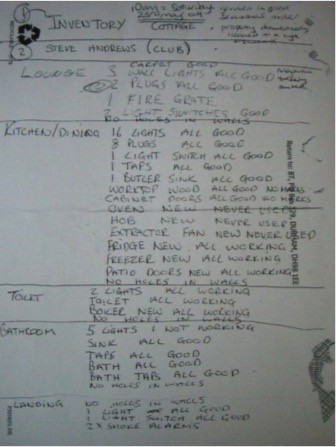 INVENTORY
COTTAGE
2 STEVE ANDREWS (CLUB)
LOUNGE
3 WALL LIGHTS ALL GOOD
2 PLUGS ALL GOOD
1 FIRE GRATE
LIGHT SWITCHES GOOD
NO HOLES IN WALLS
KITCHEN/DINING 16 LIGHTS ALL GOOD
8 PLUGS ALL GOOD
1 LIGHT SWITCH ALL GOOD
1 TAPS ALL GOOD
1 BUTLER SINK ALL GOOD
WORKTOP WOOD ALL GOOD NO MARKS
CABINET DOORS ALL GOOD NO MARKS
OVEN NEW NEVER USED
HOB NEW NEVER USED
EXTRACTOR FAN NEW NEVER USED
FRIDGE NEW ALL WORKING
FREEZER NEW ALL WORKING
PATIO DOORS NEW ALL WORKING
NO HOLES IN WALLS
TOILET 2 LIGHTS ALL WORKING
TOILET ALL WORKING
BOILER NEW ALL WORKING
NO HOLES IN WALLS
BATHROOM 5 LIGHTS 1 NOT WORKING
SINK ALL GOOD
TAPS ALL GOOD
BATH ALL GOOD
BATH TAPS ALL GOOD
NO HOLES IN WALLS
LANDING NO HOLES IN WALLS
1 LIGHT ALL GOOD
1 LIGHT SWITCH ALL GOOD
2X SMOKE ALARMS
Return to: BT,